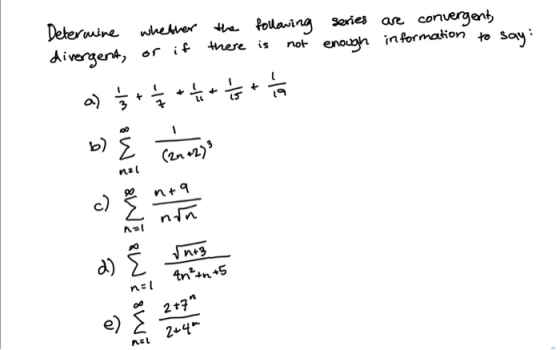 Determine whether the following series are convergent,
divergent, or if there is not enough information to say:
a) 1/3 + 1/7 + 1/11 + 1/15 + 1/19
b) ∞∑n=1 1/(2n+2)³
c) ∞∑n=1 (n+9)/(n√n)
d) ∞∑n=1 √(n+3)/(4n²+n+5)
e) ∞∑n=1 (2+7ⁿ)/(2+4ⁿ)